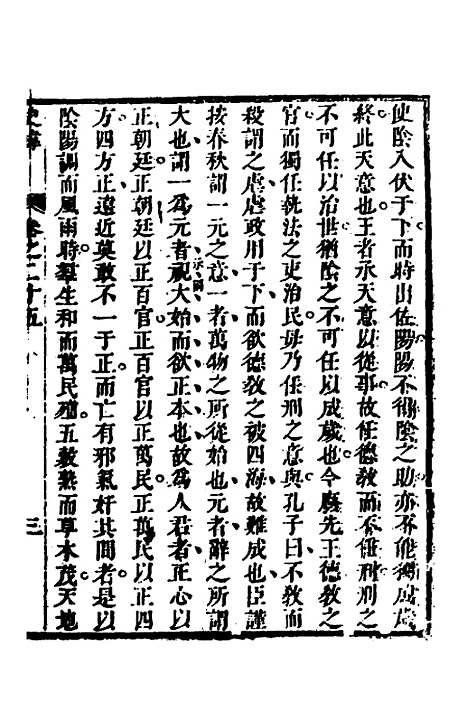 使陰入伏于下而時出佐陽陽不得陰之助亦不能獨成歲
終此天意也王者承天意以從事故任德教而不任刑刑之
不可任以治世猶陰之不可任以成歲也今廢先王德教之
官而獨任執法之吏治民毋乃任刑之意與孔子曰不教而
殺謂之虐虐政用于下而欲德教之被四海故難成也臣謹
按春秋謂一元之意一者萬物之所從始也元者辭之所謂
大也謂一爲元者視大始而欲正本也故爲人君者正心以
正朝廷正朝廷以正百官正百官以正萬民正萬民以正四
方四方正遠近莫敢不一于正而亡有邪氣奸其間者是以
陰陽調而風雨時羣生和而萬民殖五穀熟而草木茂天地
卷之二十五
三